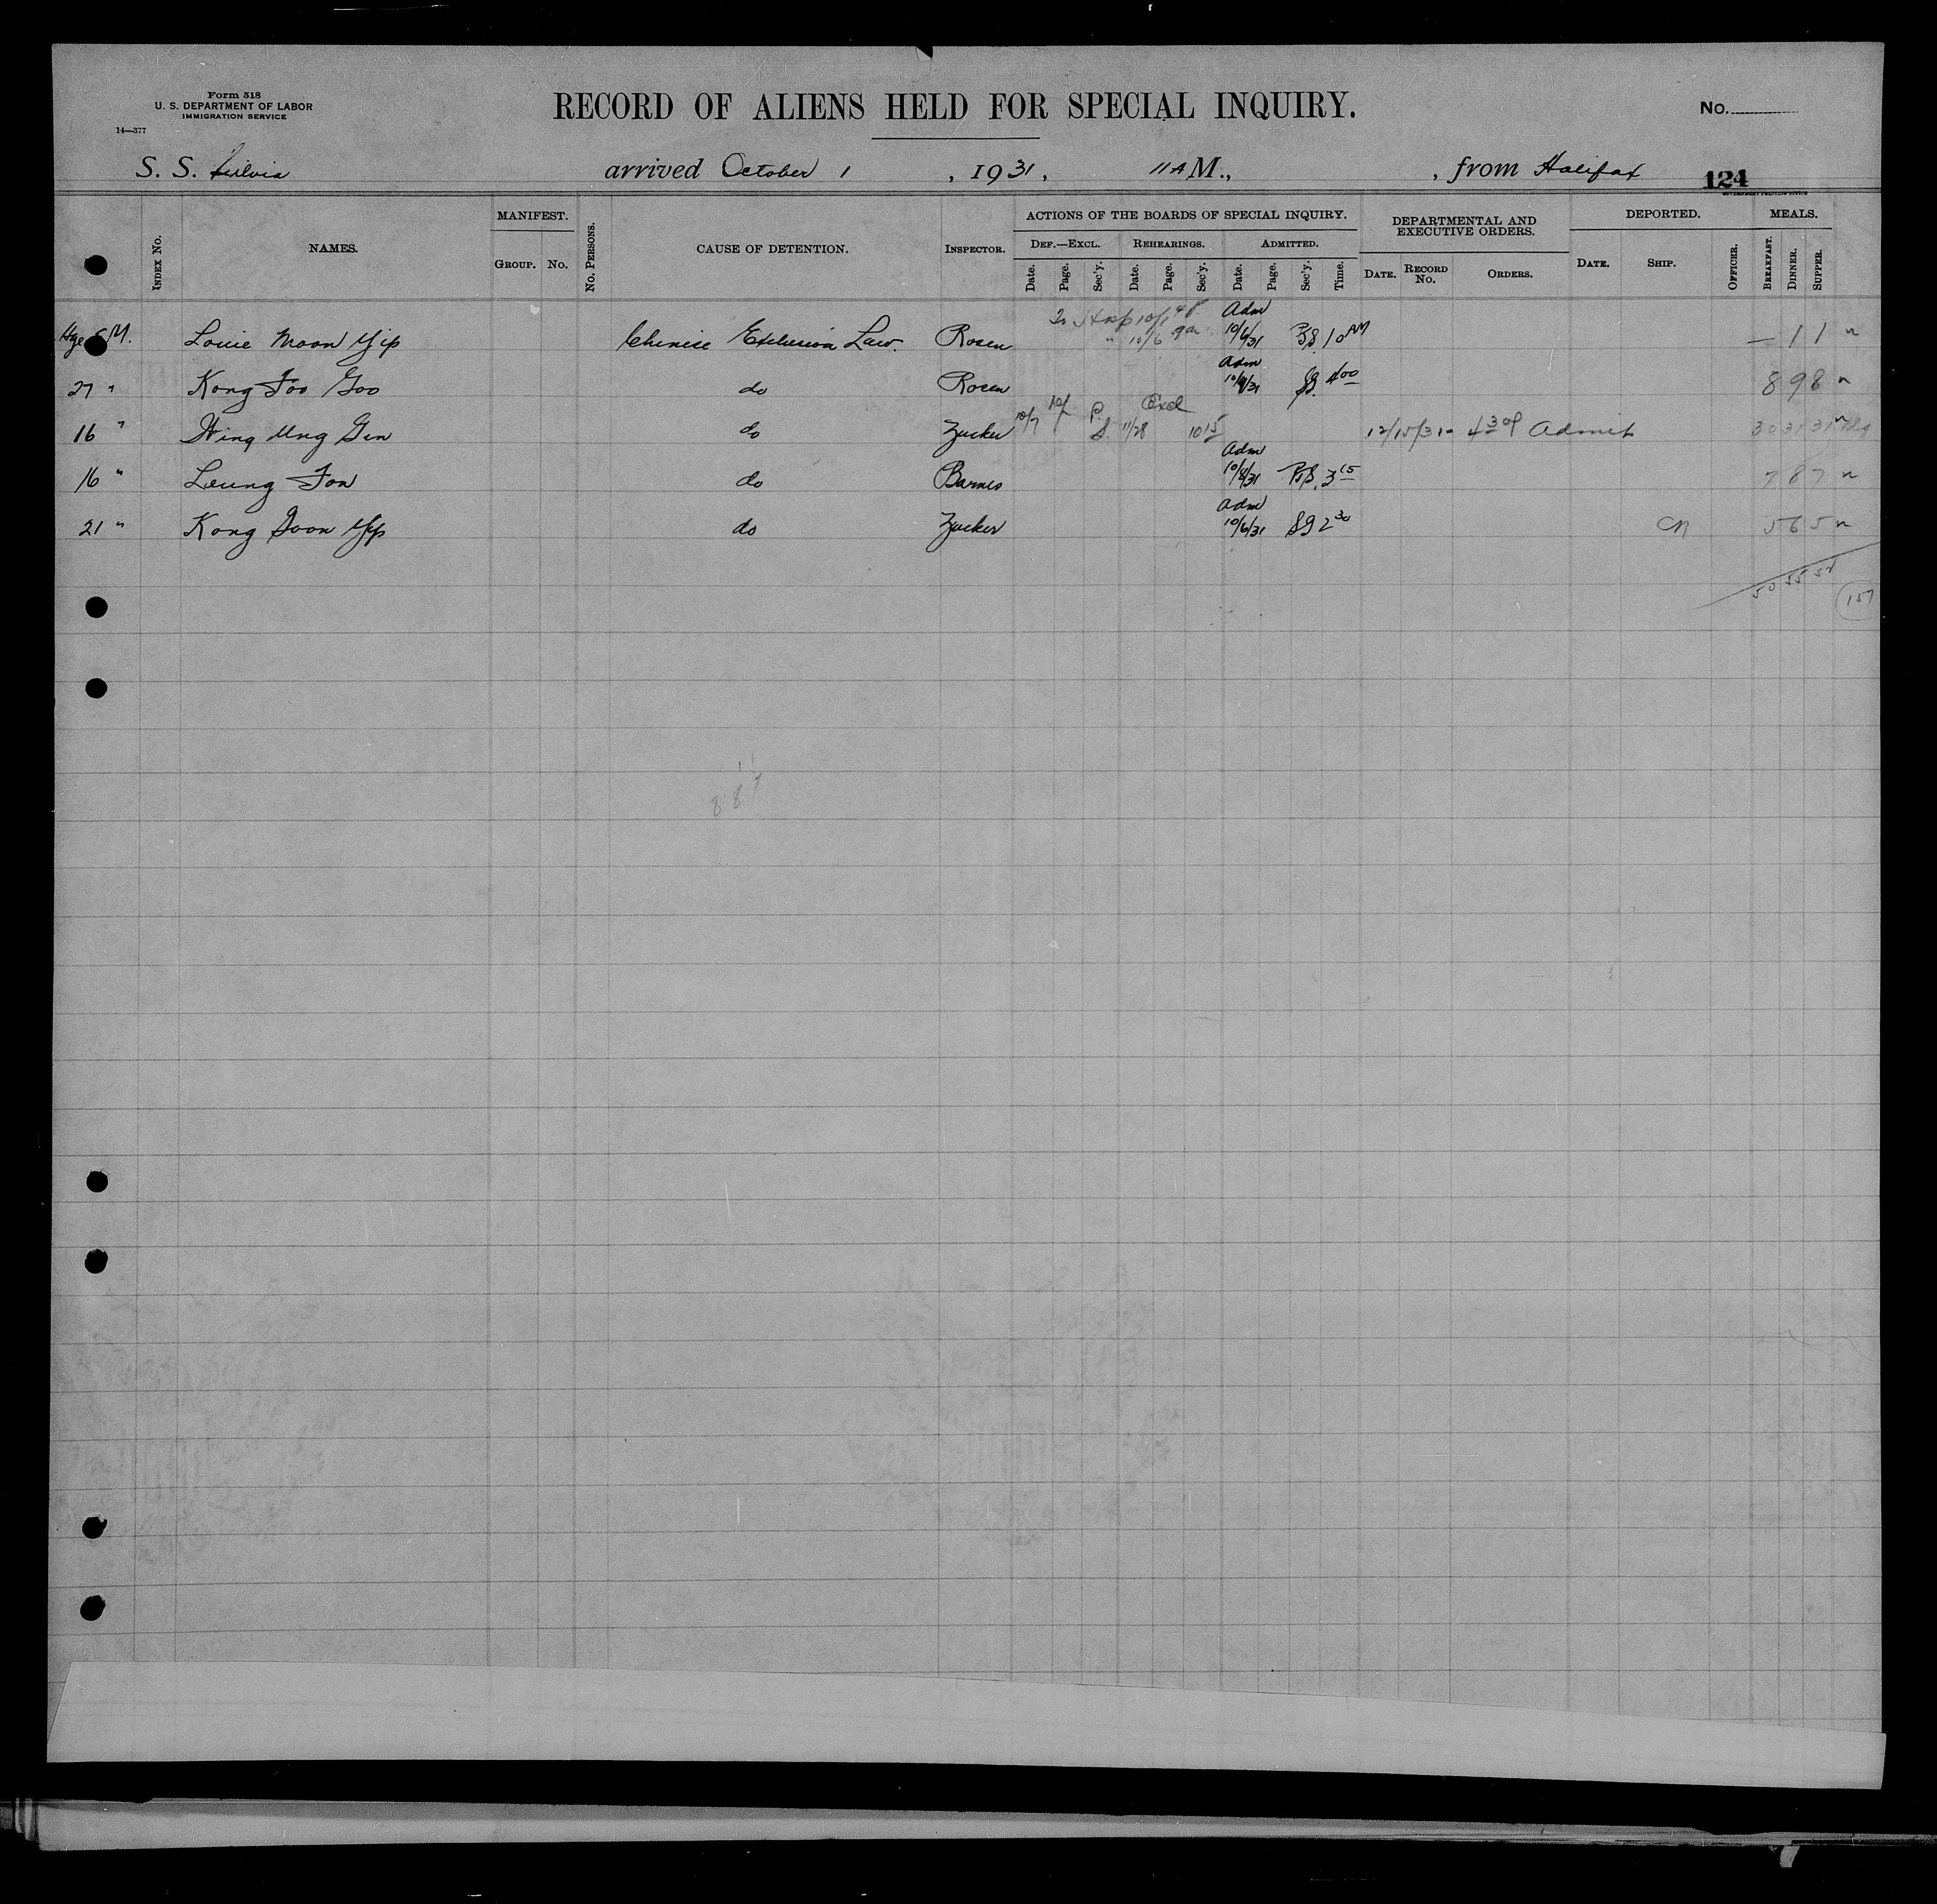 Form 518
U. S. DEPARTMENT OF LABOR
IMMIGRATION SERVICE
14—377
RECORD OF ALIENS HELD FOR SPECIAL INQUIRY.
No.
S. S. Silvia arrived October 1, 1931, 11 A M., , from Halifax
124
GOVERNMENT PRINTING OFFICE
INDEX NO. NAMES. MANIFEST. GROUP. NO. NO. PERSONS. CAUSE OF DETENTION. INSPECTOR. ACTIONS OF THE BOARDS OF SPECIAL INQUIRY. DEF.—EXCL. Date. Page. Sec'y. REHEARINGS. Date. Page. Sec'y. ADMITTED. Date. Page. Sec'y. Time. DEPARTMENTAL AND EXECUTIVE ORDERS. DATE. RECORD NO. ORDERS. DEPORTED. DATE. SHIP. OFFICER. MEALS. BREAKFAST. DINNER. SUPPER.
To Hosp 10/1 4P. Adm
Age M. Louie Moon Yip Chinese Exclusion Law. Rosen " 10/6 9am 10/6/31 BS. 10 AM — 1 1 n
Adm
27 " Kong Foo Goo do Rosen 10/9/31 4 00 8 9 8 n
Excl
16 " Wing Ung Gin do Zucker 10/7 P. S. 11/28 10 15 12/15/31 - 4 30 P Admit 30 31 31 n
Adm
16 " Leung Fon do Barnes 10/8/31 BS. 3 15 7 8 7 n
Adm
21 " Kong Doon Yip do Zucker 10/6/31 SG 2 30 CM 5 6 5 n
50 55 52
157
887